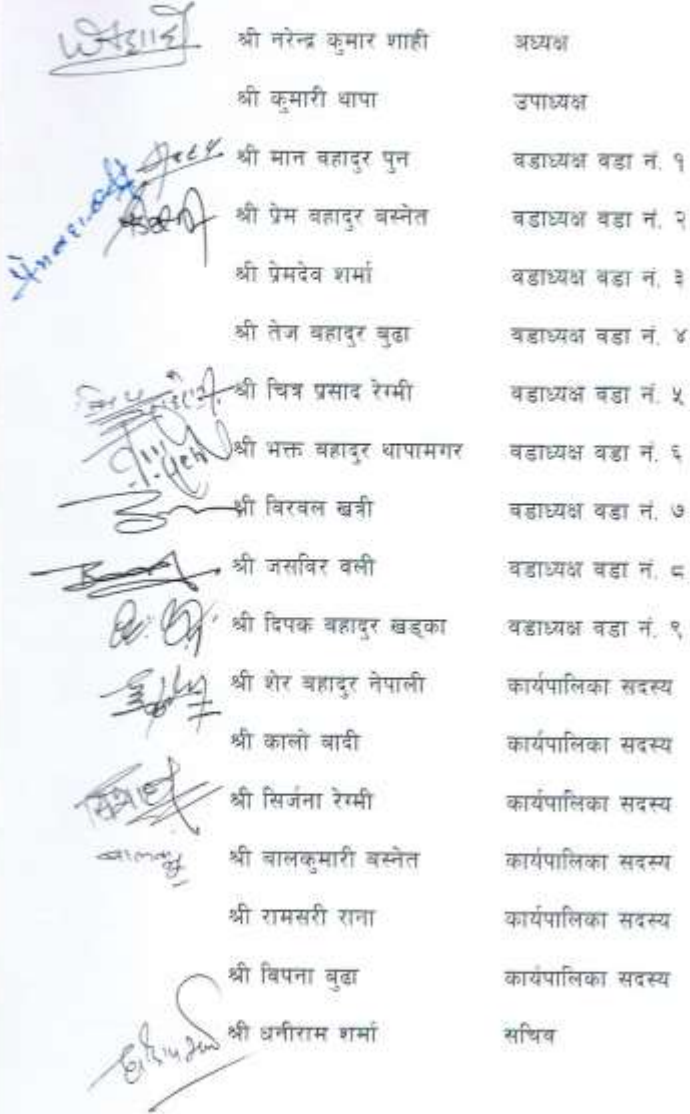 श्री नरेन्द्र कुमार शाही अध्यक्ष
श्री कुमारी थापा उपाध्यक्ष
श्री मान बहादुर पुन वडाध्यक्ष वडा नं. १
श्री प्रेम बहादुर बस्नेत वडाध्यक्ष वडा नं. २
श्री प्रेमदेव शर्मा वडाध्यक्ष वडा नं. ३
श्री तेज बहादुर बुढा वडाध्यक्ष वडा नं. ४
श्री चित्र प्रसाद रेग्मी वडाध्यक्ष वडा नं. ५
श्री भक्त बहादुर थापामगर वडाध्यक्ष वडा नं. ६
श्री विरवल खत्री वडाध्यक्ष वडा नं. ७
श्री जसविर वली वडाध्यक्ष वडा नं. ८
श्री दिपक बहादुर खड्का वडाध्यक्ष वडा नं. ९
श्री शेर बहादुर नेपाली कार्यपालिका सदस्य
श्री कालो वादी कार्यपालिका सदस्य
श्री सिर्जना रेग्मी कार्यपालिका सदस्य
श्री बालकुमारी बस्नेत कार्यपालिका सदस्य
श्री रामसरी राना कार्यपालिका सदस्य
श्री विपना बुढा कार्यपालिका सदस्य
श्री धनीराम शर्मा सचिव